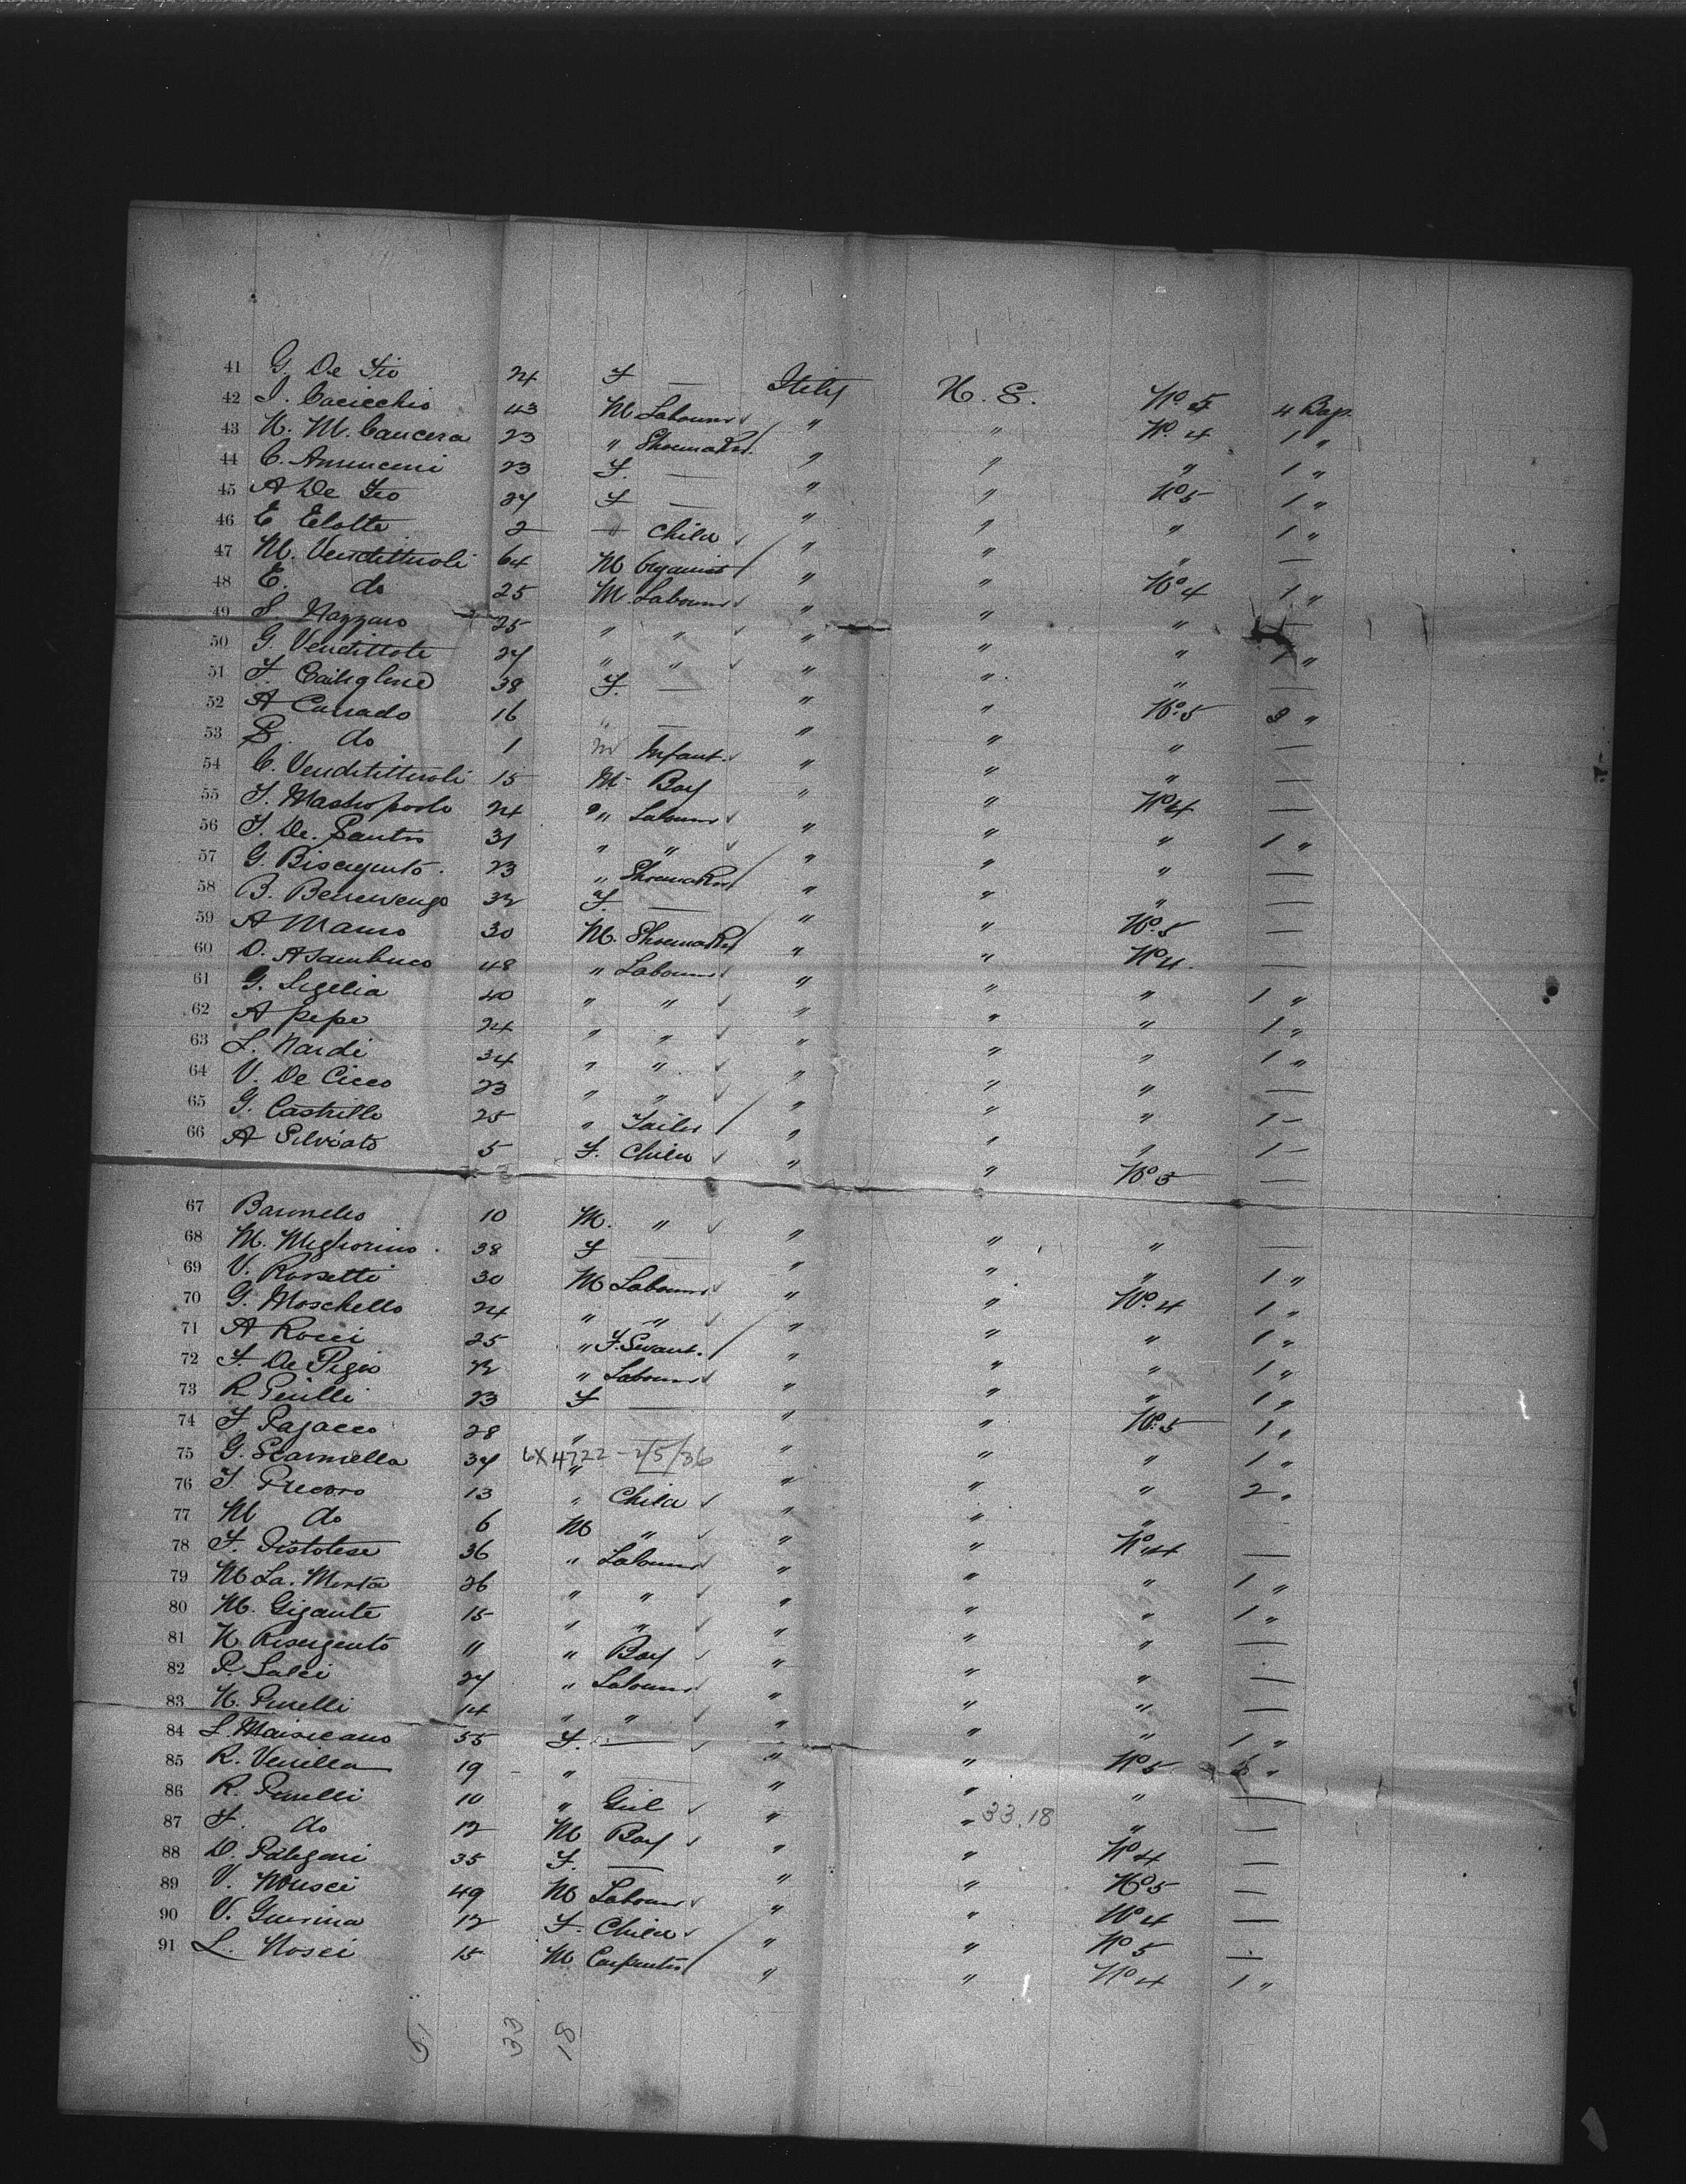 41 G. De Fio 24 F — Italy U. S. No 5 4 Bag.
42 I. Cacicchio 43 M Labourer " " No. 4 1 "
43 N. M. Cancera 23 " Shoemaker " " " 1 "
44 C. 23 F. — " " No 5 1 "
45 A De Feo 27 F — " " " 1 "
46 E 2 Child " " " —
47 M. Vendittuoli 64 M Organist " " No 4 1 "
48 E. do 25 M. Labourer " " " —
49 S. Nazzaro 25 " " " " " 1 "
50 G. Vendittole 27 " " " " " —
51 F. 38 F. — " " No. 5 3 "
52 A Currado 16 " — " " " —
53 S. do 1 M Infant. " " " —
54 C. Vendittituoli 15 M. Boy " " No 4 —
55 F. Mastropaolo 24 " Labourer " " " 1 "
56 F. De. Santis 31 " " " " " —
57 G. Biscegento. 23 " Shoemaker " " " —
58 B. Benevengo 32 F. — " " No. 5 —
59 A Mauro 30 M. Shoemaker " " No 4. —
60 D. A Sambuco 48 " Labourer " " " 1 "
61 G. Sigelia 40 " " " " " 1 "
62 A Pepe 24 " " " " " 1 "
63 L. Nardi 34 " " " " " —
64 V. De Cicco 23 " " " " " 1 —
65 G. Castrillo 25 " Tailor " " " 1 —
66 A Silviato 5 F. Child " " No 5 —
67 Barmeles 10 M. " " " " —
68 M. Migliorino. 38 F — " " " 1 "
69 V. Rossetti 30 M Labourer " " No. 4 1 "
70 G. Moschello 24 " " " " " 1 "
71 A Rocci 25 " F. Servant. " " " 1 "
72 F. De Pegio 22 " Labourer " " " 1 "
73 R Perilli 23 F — " " No. 5 1 "
74 F. Pagacco 28 " — " " " 1 "
75 G. Scarmella 37 " 6X4722 - 2/5/36 " " " 2 "
76 F. 13 " Child " " "
77 M do 6 M " " " No 4 —
78 F. Pistotese 36 " Labourer " " " 1 "
79 M La. Morta 26 " " " " " 1 "
80 M. Gigante 15 " " " " " —
81 N Risergento 11 " Boy " " " —
82 P. Salci 27 " Labourer " " " —
83 N. Perelli 14 " " " " " 1 "
84 L. Maiseano 55 F. — " " No 5 3 "
85 R. Verilla 19 " — " " " —
86 R. Perelli 10 " Girl " " 33.18 " —
87 F. do 12 M Boy " " No 4 —
88 D. 35 F. — " " No 5 —
89 V. Musci 49 M Labourer " " No 4 —
90 V. Guerina 12 F. Child " " No 5 —
91 L. Mosci 15 M Carpenter " " No 4 1 "
51 33 18